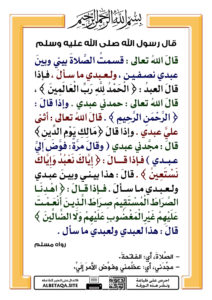 بسم الله الرحمن الرحيم
قال رسول الله صلى الله عليه وسلم
قال الله تعالى : قسمت الصلاة بيني وبين
عبدي نصفين ، ولعبدي ما سأل ، فإذا
قال العبد : ﴿ الحمد لله رب العالمين ﴾ ،
قال الله تعالى : حمدني عبدي . وإذا قال :
﴿ الرحمن الرحيم ﴾ . قال الله تعالى : أثنى
علي عبدي . وإذا قال ﴿ مالك يوم الدين ﴾
قال : مجدني عبدي ( وقال مرة : فوض إلي
عبدي ) فإذا قال : ﴿ إياك نعبد وإياك
نستعين ﴾ . قال : هذا بيني وبين عبدي
ولعبدي ما سأل . فإذا قال : ﴿ اهدنا
الصراط المستقيم صراط الذين أنعمت
عليهم غير المغضوب عليهم ولا الضالين ﴾
قال : هذا لعبدي ولعبدي ما سأل .
رواه مسلم
– الصلاة، أي: الفاتحة.
– مجدني، أي: عظمني وفوض الأمر إلي.
ALBETAQA.SITE